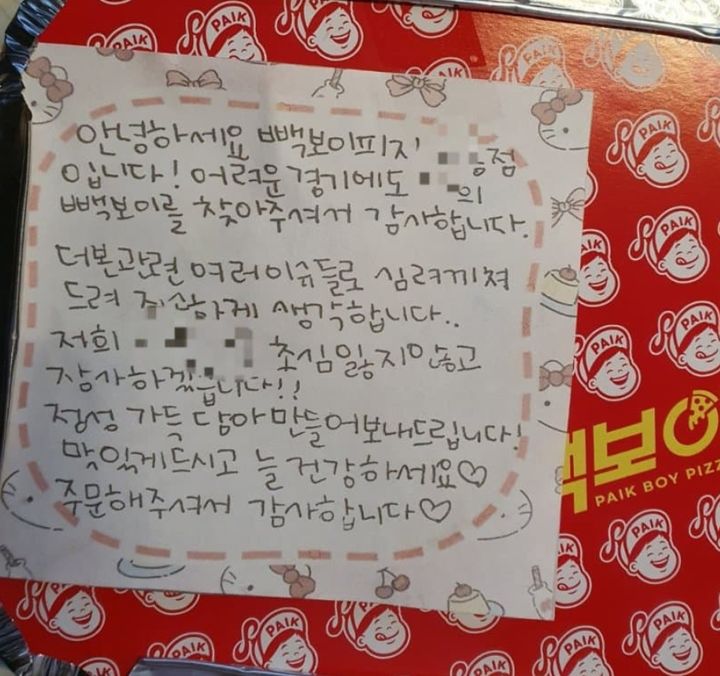 안녕하세요 빽보이피자 점
입니다! 어려운 경기에도 의
빽보이를 찾아주셔서 감사합니다.
더본관련 여러이슈들로 심려끼쳐
드려 죄송하게 생각합니다..
저희 초심잃지않고
장사하겠습니다!!
정성 가득 담아 만들어보내드립니다!
맛있게드시고 늘 건강하세요♡
주문해주셔서 감사합니다♡
빽보이
PAIK BOY PIZZ
PAIK
PAIK
PAIK
PAIK
PAIK
PAIK
PAIK
PAIK
PAIK
PAIK
PAIK